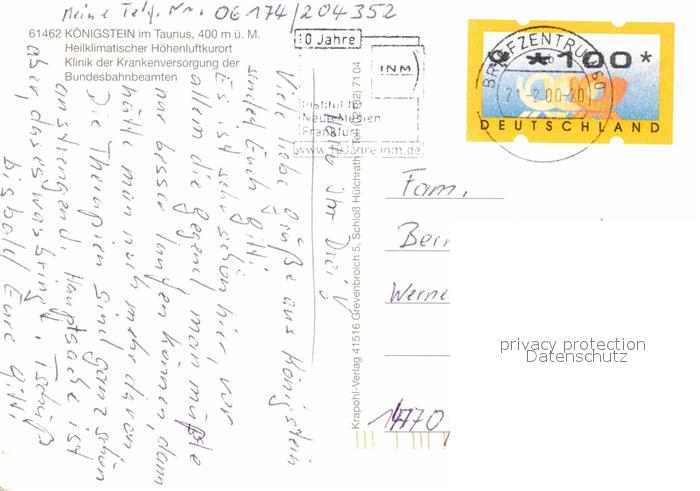 Meine Telef. Nr. 06174/204352
61462 KÖNIGSTEIN im Taunus, 400 m ü. M.
Heilklimatischer Höhenluftkurort
Klinik der Krankenversorgung der
Bundesbahnbeamten
10 Jahre
INM
Institut für
Neue Medien
Frankfurt
www.10jahre.inm.de
BRIEFZENTRUM 60
*100*
DEUTSCHLAND
Viele liebe Grüße aus Königstein
sendet Euch Gitti.
Es ist sehr schön hier, vor
allem die Gegend, man müßte
nur besser laufen können, dann
hätte man noch mehr davon.
Die Therapien sind ganz schön
anstrengend. Hauptsache ist
aber, das es was bringt. Tschüß
bis bald Eure Gitti
Krapohl-Verlag 41516 Grevenbroich 5, Schloß Hülchrath, Tel. (02182) 7104
Fam.
Werne
privacy protection
Datenschutz